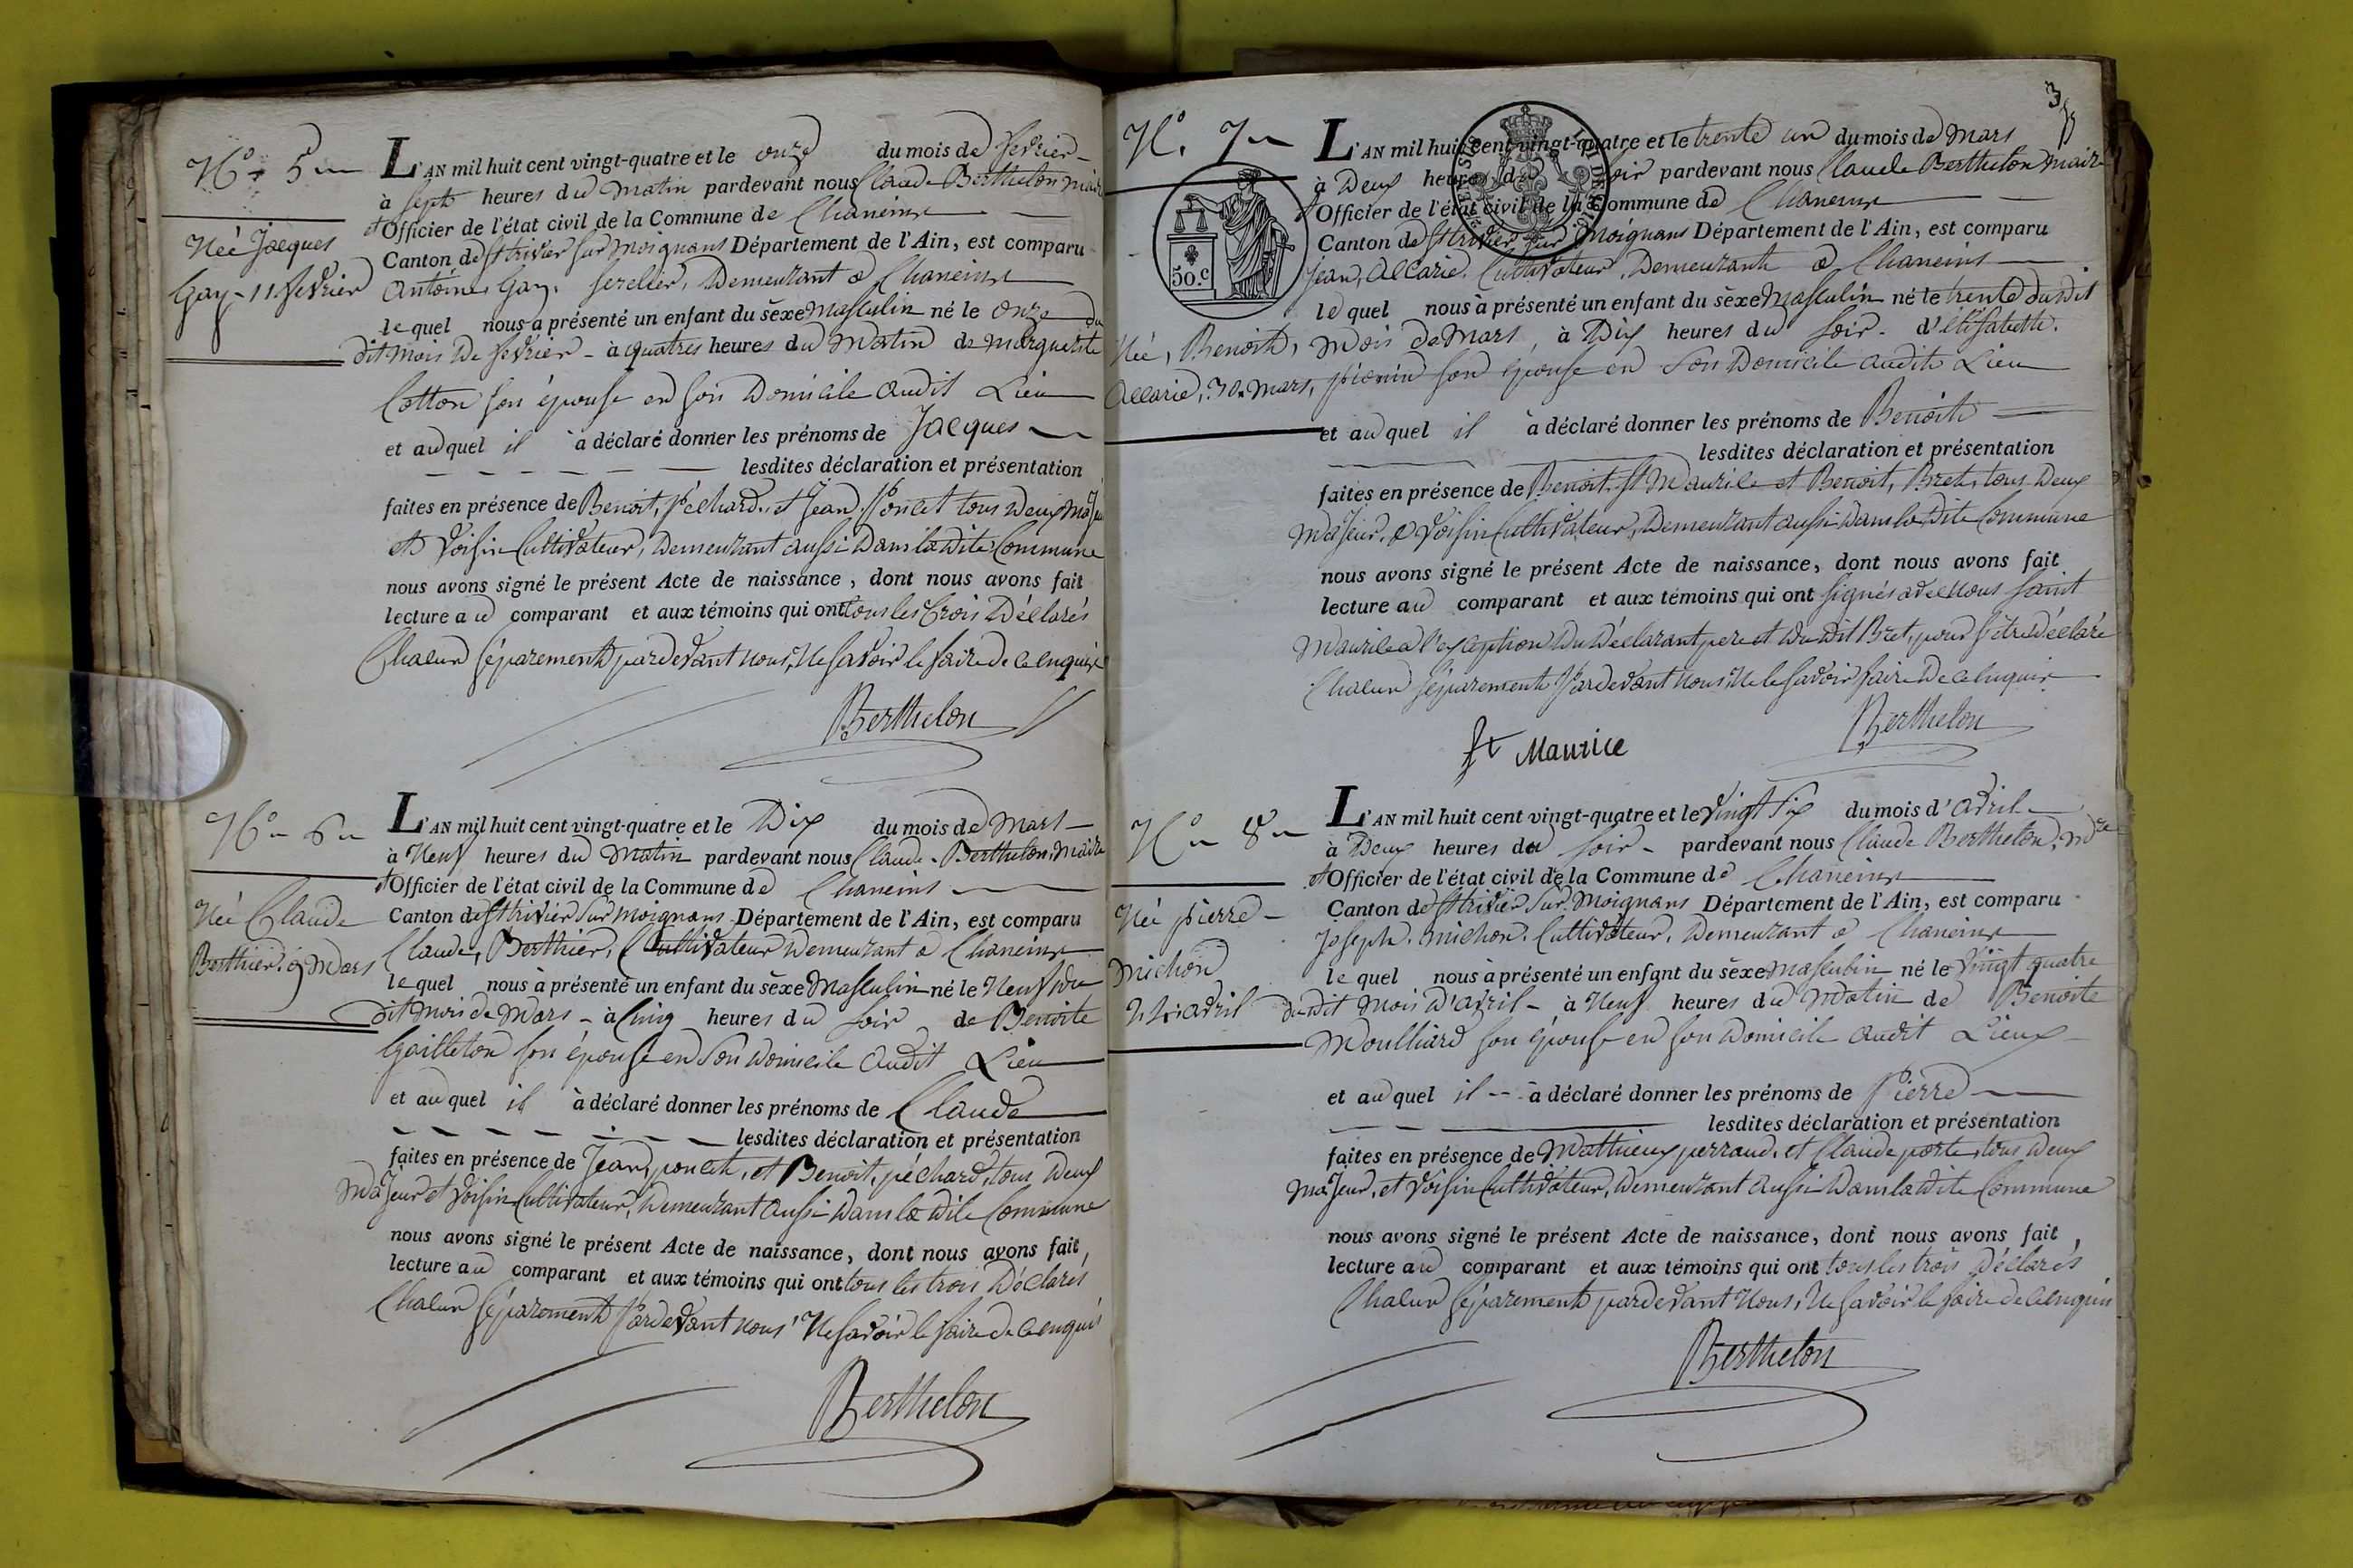 N.° 5
L'AN mil huit cent vingt-quatre et le onze du mois de fevrier
à sept heures du matin pardevant nous Claude Berthelon maire
et Officier de l'état civil de la Commune de Chaneins
Canton de St trivier sur moignans Département de l'Ain, est comparu
antoine Gay, Demeurant a Chaneins
le quel nous à présenté un enfant du sèxe masculin né le onze du
dit mois de fevrier à quatres heures du matin de marguerite
Cotton son épouse en son Domicile audit Lieu
et au quel il à déclaré donner les prénoms de Jacques
lesdites déclaration et présentation
faites en présence de Benoit, péchard, et Jean Poncet tous deux majeur
et Voisin Cultivateur, Demeurant aussi dans la dite Commune
nous avons signé le présent Acte de naissance, dont nous avons fait
lecture au comparant et aux témoins qui ont tous les trois Déclarés
Chacun séparement pardevant nous, Ne savoir le faire de ce enquis
Berthelon
Néé Jacques
Gay 11 fevrier
N.° 6
L'AN mil huit cent vingt-quatre et le Dix du mois de Mars
à Neuf heures du Matin pardevant nous Claude Berthelon, Maire
et Officier de l'état civil de la Commune de Chaneins
Canton de St trivier Sur moignans Département de l'Ain, est comparu
Claude, Berthier, Cultivateur Demeurant a Chaneins
le quel nous à présenté un enfant du sèxe Masculin né le Neuf du
dit mois de Mars à Cinq heures du soir de Benoite
Gailleton son épouse en Son Domicile audit Lieu
et au quel il à déclaré donner les prénoms de Claude
lesdites déclaration et présentation
faites en présence de Jean, poncet, et Benoit, péchard, tous deux
Majeur et Voisin Cultivateur, Demeurant aussi dans la dite Commune
nous avons signé le présent Acte de naissance, dont nous avons fait
lecture au comparant et aux témoins qui ont tous les trois Déclarés
Chacun séparement Pardevant nous Ne savoir le faire de ce enquis
Berthelon
Néé Claude
Berthier 9 Mars
3
N.° 7
L'AN mil huit cent vingt-quatre et le trente un du mois de Mars
à Deux heures du soir pardevant nous Claude Berthelon Maire
et Officier de l'état civil de la Commune de Chaneins
Canton de St trivier sur Moignans Département de l'Ain, est comparu
Jean, accarie, Cultivateur, Demeurant a Chaneins
le quel nous à présenté un enfant du sèxe Masculin né le trente dudit
Mois de Mars, à Dix heures du soir d'elisabette
son épouse en Son Domicile audit Lieu
et au quel il à déclaré donner les prénoms de Benoit
lesdites déclaration et présentation
faites en présence de Benoit, St Maurice et Benoit, Bret, tous deux
Majeur, & Voisin Cultivateur, Demeurant aussi dans la dite Commune
nous avons signé le présent Acte de naissance, dont nous avons fait
lecture au comparant et aux témoins qui ont signés avec nous saint
Maurice a l'exception du Déclarant pere et du dit Bret, pour s'être déclaré
Chacun séparement Pardevant nous, Ne le savoir faire de ce enquis
St Maurice
Berthelon
50.c
Néé, Benoit,
accarie, 30 Mars,
N.° 8
L'AN mil huit cent vingt-quatre et le Vingt Six du mois d'avril
à Deux heures du soir pardevant nous Claude Berthelon, Mre
et Officier de l'état civil de la Commune de Chaneins
Canton de St trivier Sur Moignans Département de l'Ain, est comparu
Joseph, michon, Cultivateur, Demeurant a Chaneins
le quel nous à présenté un enfant du sèxe Masculin né le Vingt quatre
du dit Mois d'avril à Neuf heures du Matin de Benoite
Moulliard son épouse en son Domicile audit Lieux
et au quel il à déclaré donner les prénoms de Pierre
lesdites déclaration et présentation
faites en présence de Matthieux perraud, et Claude porte, tous deux
Majeur, et Voisin Cultivateur, Demeurant aussi dans la dite Commune
nous avons signé le présent Acte de naissance, dont nous avons fait
lecture au comparant et aux témoins qui ont tous les trois Déclarés
Chacun séparement pardevant Nous, Ne savoir le faire de ce enquis
Berthelon
Néé pierre
michon
24 avril